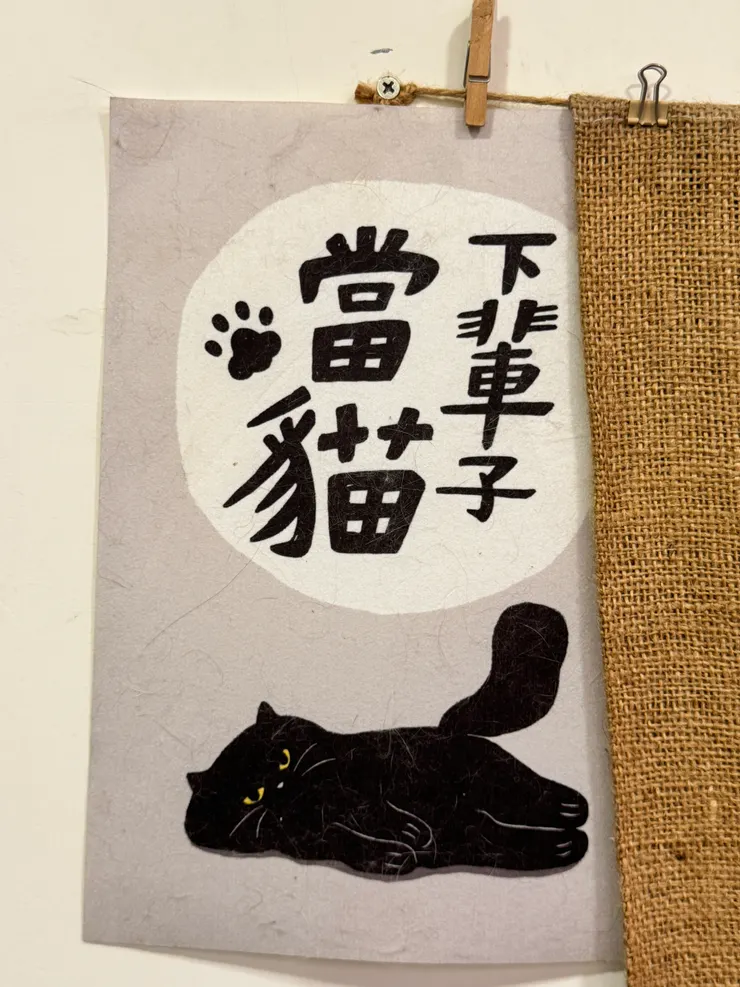 下輩子
當貓